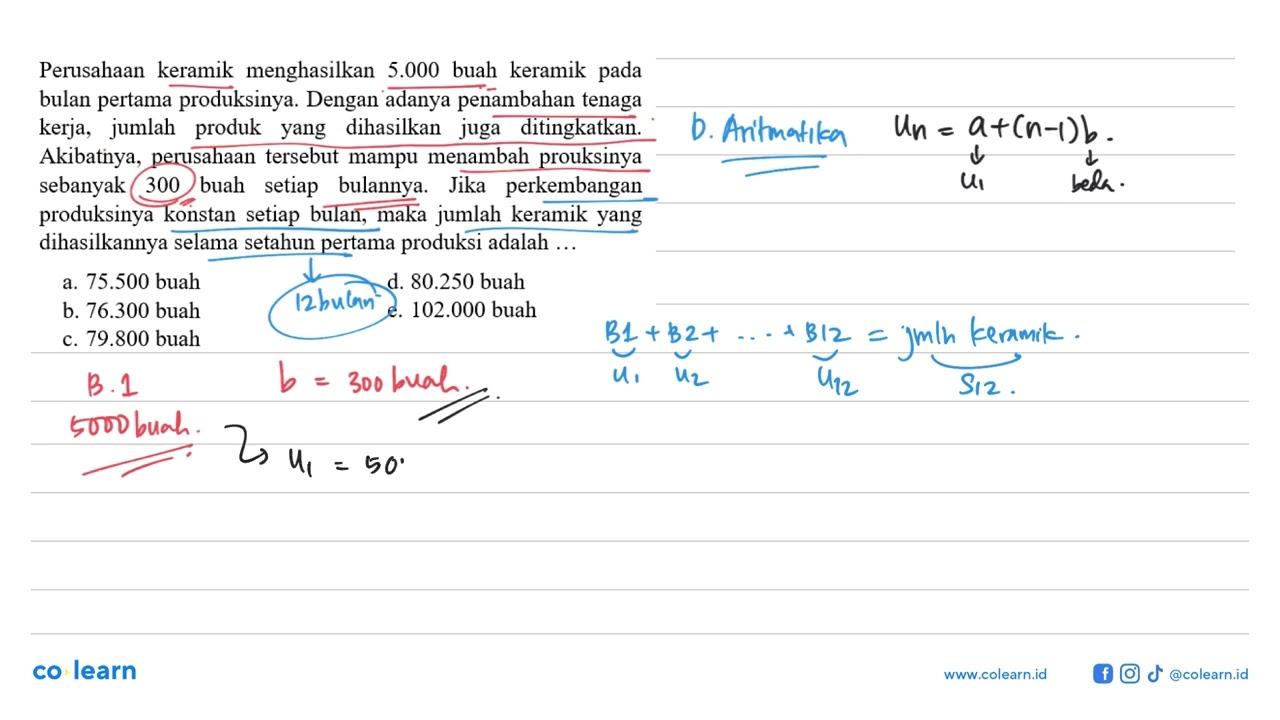 Perusahaan keramik menghasilkan 5.000 buah keramik pada
bulan pertama produksinya. Dengan adanya penambahan tenaga
kerja, jumlah produk yang dihasilkan juga ditingkatkan.
Akibatnya, perusahaan tersebut mampu menambah prouksinya
sebanyak 300 buah setiap bulannya. Jika perkembangan
produksinya konstan setiap bulan, maka jumlah keramik yang
dihasilkannya selama setahun pertama produksi adalah ...
a. 75.500 buah
b. 76.300 buah
c. 79.800 buah
d. 80.250 buah
e. 102.000 buah
12 bulan
B.1
5000 buah.
b = 300 buah.
U1 = 50
b. Aritmatika
Un = a+(n-1)b.
U1
beda.
B1 + B2 + ... + B12 = jmlh keramik.
U1 U2 U12 S12.
co learn
www.colearn.id
@colearn.id